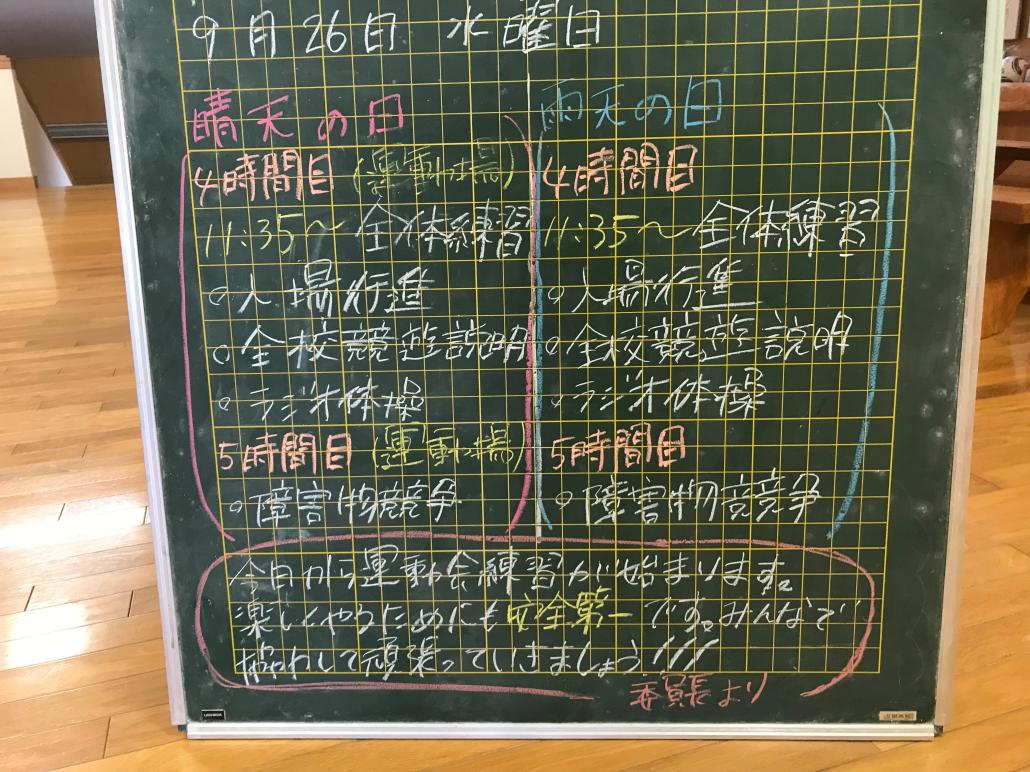 9月26日 水曜日
晴天の日
4時間目(運動場)
11:35〜全体練習
○入場行進
○全校競遊説明
○ラジオ体操
5時間目(運動場)
○障害物競争
雨天の日
4時間目
11:35〜全体練習
○入場行進
○全校競遊説明
○ラジオ体操
5時間目
○障害物競争
今日から運動会練習が始まります。
楽しくやるためにも安全第一です。みんなで
して頑張っていきましょう!!!
委員長より